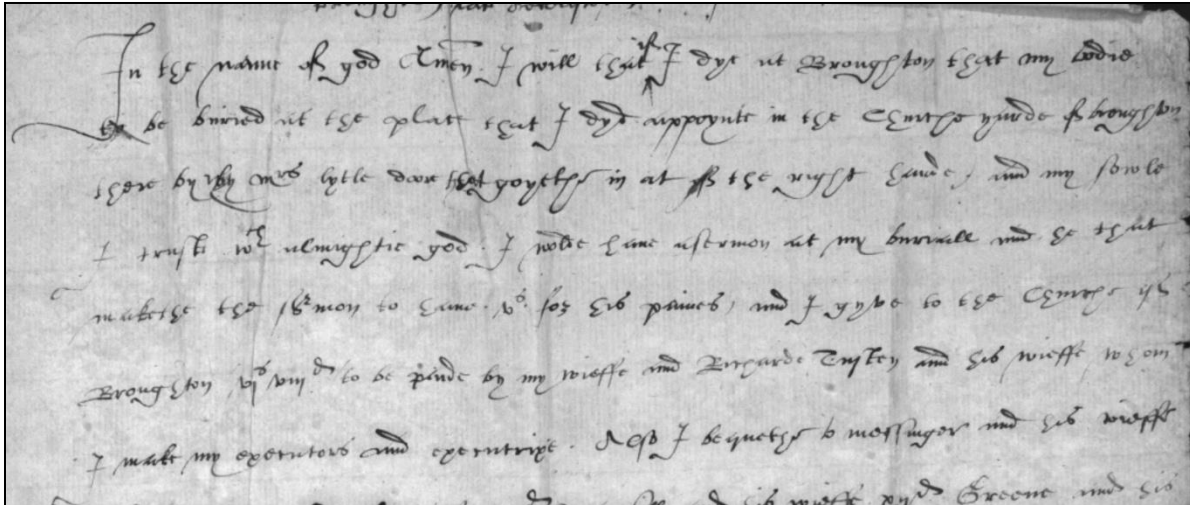 In the name off god Amen. I will that if I dye at Broughton that my bodie
to be buried at the place that I dyd appoynte in the Churche yarde off broughton
there by my mrs lytle doore that goyethe in at off the right hande, and my sowle
I trust wth almightie god. I wolde have a sermon at my buriall and he that
makethe the sermon to have vs for his paines, and I gyve to the Churche of
Broughton vjs viijd to be paide by my wieffe and Richarde and his wieffe whom
I make my executors and executrixe. Also I bequethe to messinger and his wieffe
his wieffe xijd Greene and his